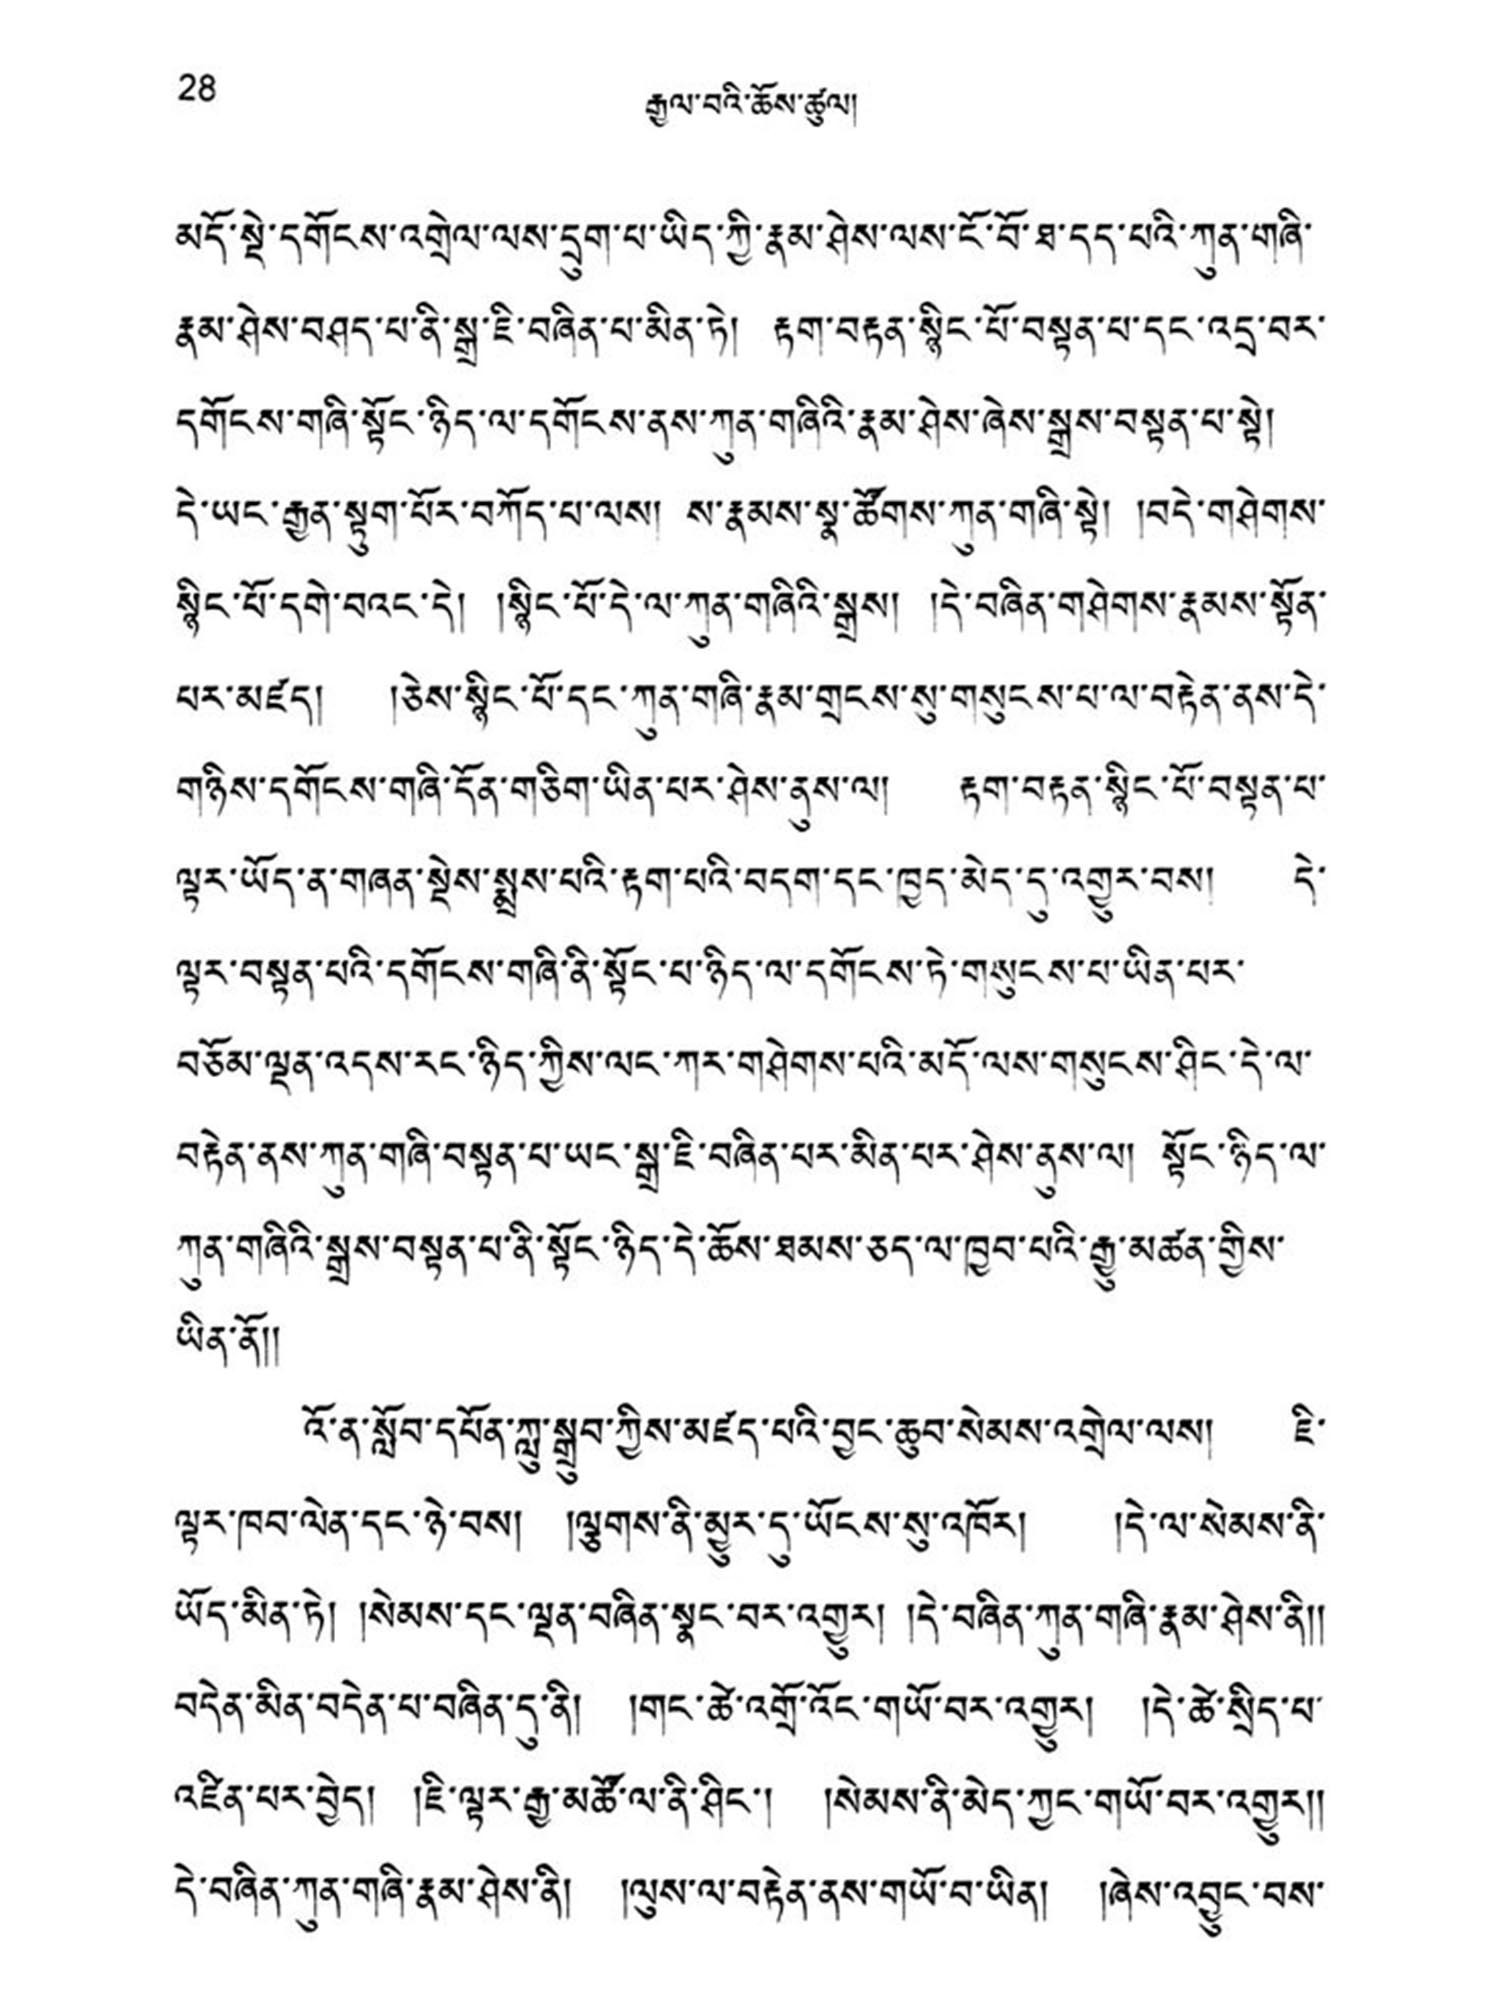 28
རྒྱལ་བའི་ཆོས་ཚུལ།
མདོ་སྡེ་དགོངས་འགྲེལ་ལས་དྲུག་པ་ཡིད་ཀྱི་རྣམ་ཤེས་ལས་ངོ་བོ་ཐ་དད་པའི་ཀུན་གཞི་
རྣམ་ཤེས་བཤད་པ་ནི་སྒྲ་ཇི་བཞིན་པ་མིན་ཏེ། རྟག་བརྟན་སྙིང་པོ་བསྟན་པ་དང་འདྲ་བར་
དགོངས་གཞི་སྟོང་ཉིད་ལ་དགོངས་ནས་ཀུན་གཞིའི་རྣམ་ཤེས་ཞེས་སྒྲས་བསྟན་པ་སྟེ།
དེ་ཡང་རྒྱན་སྟུག་པོར་བཀོད་པ་ལས། ས་རྣམས་སྣ་ཚོགས་ཀུན་གཞི་སྟེ། །བདེ་གཤེགས་
སྙིང་པོ་དགེ་བའང་དེ། །སྙིང་པོ་དེ་ལ་ཀུན་གཞིའི་སྒྲས། །དེ་བཞིན་གཤེགས་རྣམས་སྟོན་
པར་མཛད། །ཅེས་སྙིང་པོ་དང་ཀུན་གཞི་རྣམ་གྲངས་སུ་གསུངས་པ་ལ་བརྟེན་ནས་དེ་
གཉིས་དགོངས་གཞི་དོན་གཅིག་ཡིན་པར་ཤེས་ནུས་ལ། རྟག་བརྟན་སྙིང་པོ་བསྟན་པ་
ལྟར་ཡོད་ན་གཞན་སྡེས་སྨྲས་པའི་རྟག་པའི་བདག་དང་ཁྱད་མེད་དུ་འགྱུར་བས། དེ་
ལྟར་བསྟན་པའི་དགོངས་གཞི་ནི་སྟོང་པ་ཉིད་ལ་དགོངས་ཏེ་གསུངས་པ་ཡིན་པར་
བཅོམ་ལྡན་འདས་རང་ཉིད་ཀྱིས་ལང་ཀར་གཤེགས་པའི་མདོ་ལས་གསུངས་ཤིང་དེ་ལ་
བརྟེན་ནས་ཀུན་གཞི་བསྟན་པ་ཡང་སྒྲ་ཇི་བཞིན་པར་མིན་པར་ཤེས་ནུས་ལ། སྟོང་ཉིད་ལ་
ཀུན་གཞིའི་སྒྲས་བསྟན་པ་ནི་སྟོང་ཉིད་དེ་ཆོས་ཐམས་ཅད་ལ་ཁྱབ་པའི་རྒྱུ་མཚན་གྱིས་
ཡིན་ནོ།།
འོ་ན་སློབ་དཔོན་ཀླུ་སྒྲུབ་ཀྱིས་མཛད་པའི་བྱང་ཆུབ་སེམས་འགྲེལ་ལས། ཇི་
ལྟར་ཁབ་ལེན་དང་ཉེ་བས། །ལྕགས་ནི་མྱུར་དུ་ཡོངས་སུ་འཁོར། །དེ་ལ་སེམས་ནི་
ཡོད་མིན་ཏེ། །སེམས་དང་ལྡན་བཞིན་སྣང་བར་འགྱུར། །དེ་བཞིན་ཀུན་གཞི་རྣམ་ཤེས་ནི།།
བདེན་མིན་བདེན་པ་བཞིན་དུ་ནི། །གང་ཚེ་འགྲོ་འོང་གཡོ་བར་འགྱུར། །དེ་ཚེ་སྲིད་པ་
འཛིན་པར་བྱེད། །ཇི་ལྟར་རྒྱ་མཚོ་ལ་ནི་ཤིང་། །སེམས་ནི་མེད་ཀྱང་གཡོ་བར་འགྱུར།།
དེ་བཞིན་ཀུན་གཞི་རྣམ་ཤེས་ནི། །ལུས་ལ་བརྟེན་ནས་གཡོ་བ་ཡིན། །ཞེས་འབྱུང་བས་